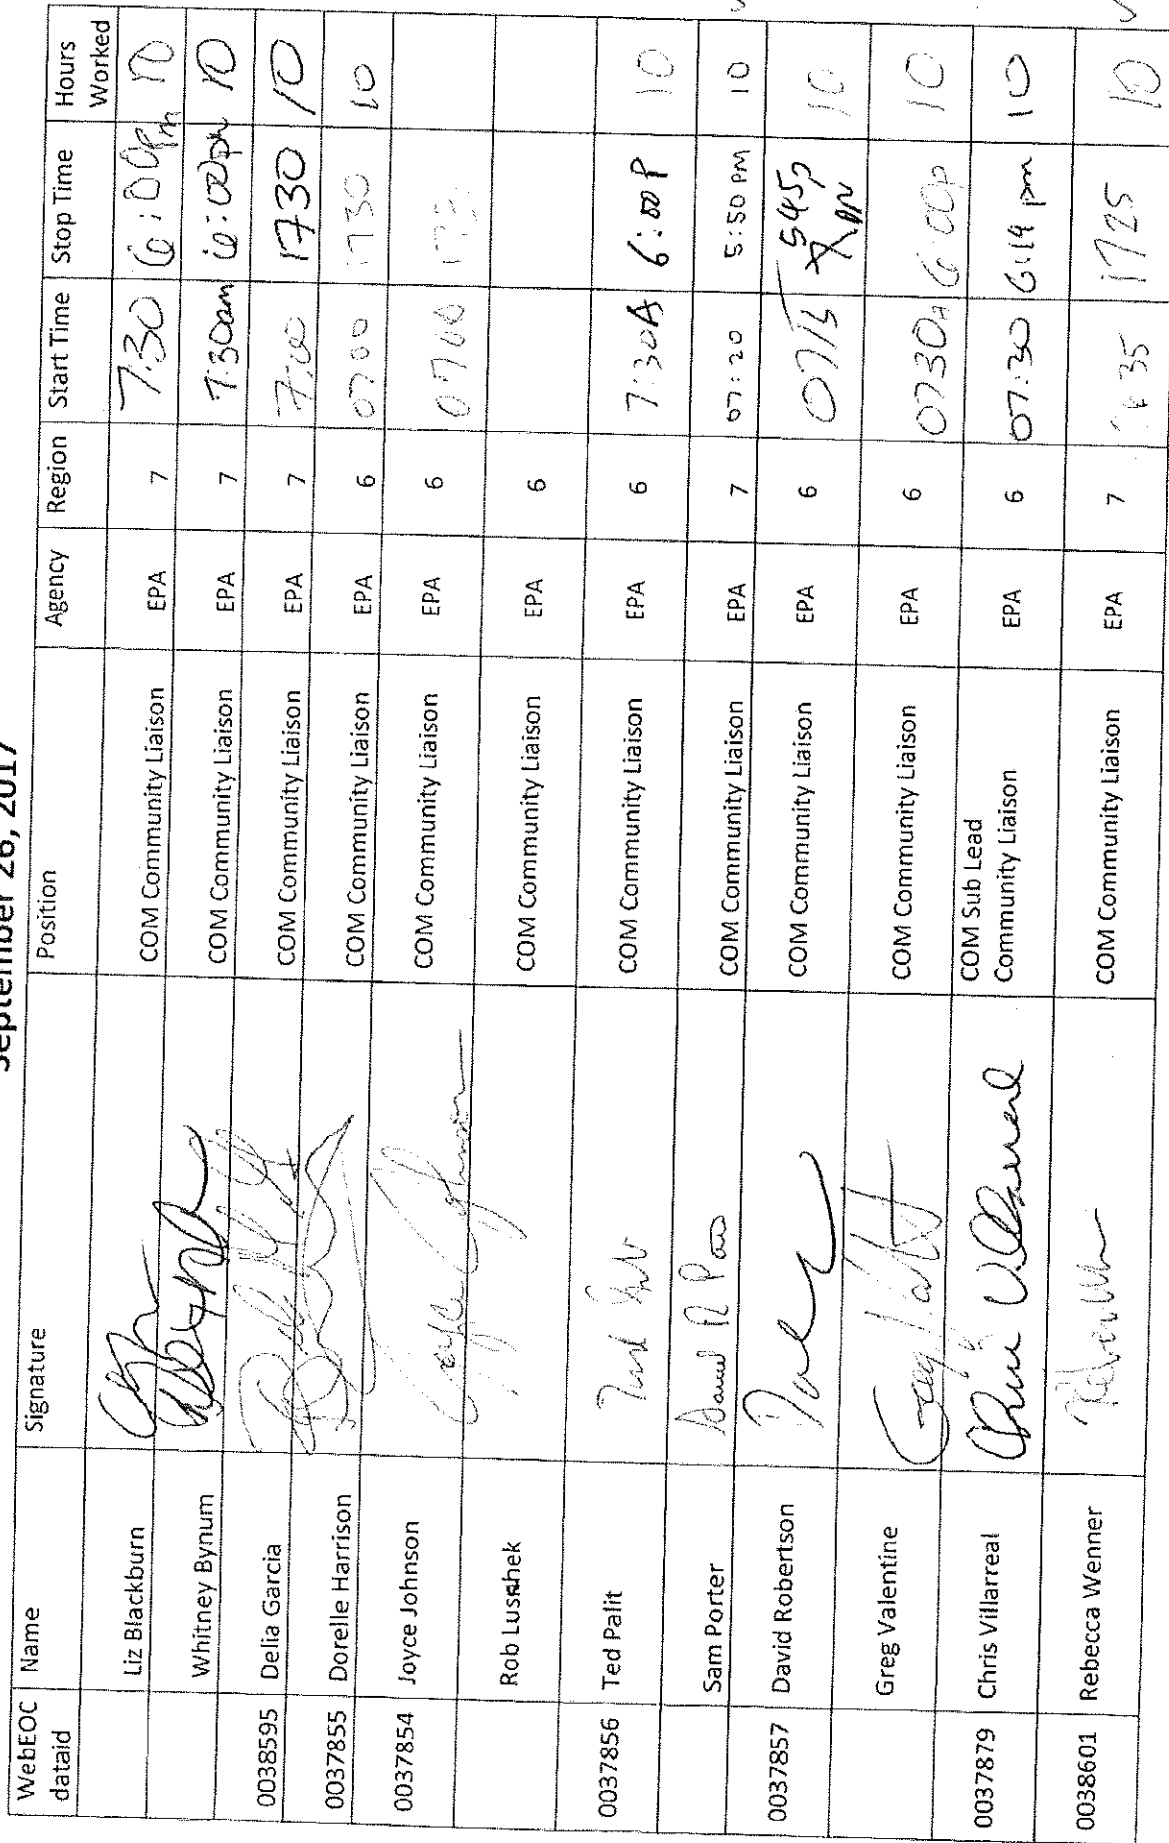 September 26, 2017
WebEOC dataid Name Signature Position Agency Region Start Time Stop Time Hours Worked
Liz Blackburn COM Community Liaison EPA 7 7:30 6:00pm 10
Whitney Bynum COM Community Liaison EPA 7 7:30am 6:00pm 10
0038595 Delia Garcia COM Community Liaison EPA 7 7:00 1730 10
0037855 Dorelle Harrison COM Community Liaison EPA 6 0700 1730 10
0037854 Joyce Johnson Joyce Johnson COM Community Liaison EPA 6 0700
Rob Lusnhek COM Community Liaison EPA 6
0037856 Ted Palit COM Community Liaison EPA 6 7:30A 6:00P 10
Sam Porter COM Community Liaison EPA 7 07:20 5:50 PM 10
0037857 David Robertson COM Community Liaison EPA 6 0715 545p 10
Greg Valentine COM Community Liaison EPA 6 0730A 6:00p 10
0037879 Chris Villarreal Chris Villarreal COM Sub Lead Community Liaison EPA 6 07:30 6:19 pm 10
0038601 Rebecca Wenner COM Community Liaison EPA 7 35 1725 10